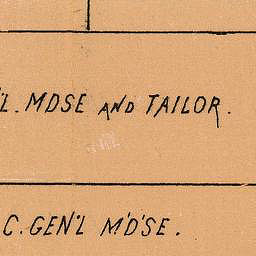 'L. MDSE AND TAILOR.
C. GEN'L M'D'SE.